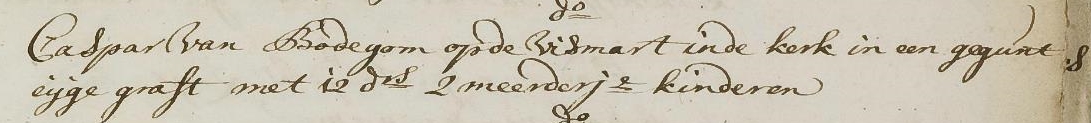 do
Caspar Van Bodegom opde Vismart inde kerk in een gegunt
eijge graft met 12 drs 2 meerderje kinderen
do